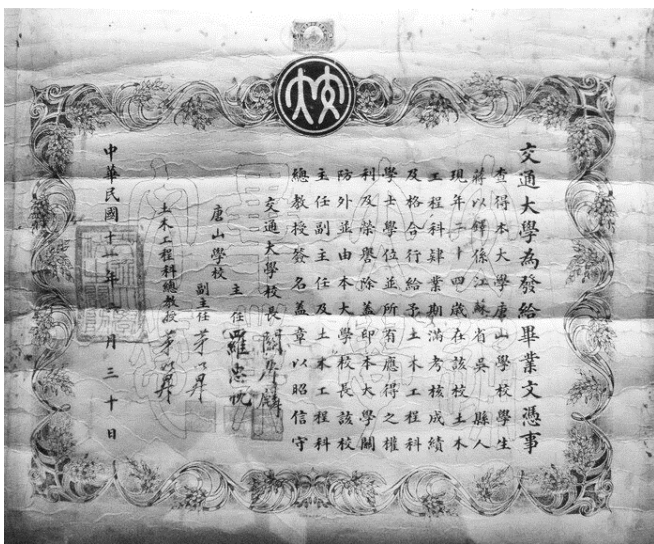 交通大學為發給畢業文憑事
查得本大學唐山學校學生
蔣以鐸係江蘇省吳縣人
現年二十四歲在該校土木
工程科肄業期滿考核成績
及格合行給予土木工程科
學士學位並所有應得之權
利及榮譽除蓋印本大學關
防外並由本大學校長該校
主任副主任及土木工程科
總教授簽名蓋章以昭信守
交通大學校長
唐山學校
主任 羅忠忱
副主任 茅以昇
土木工程科總教授 茅以昇
中華民國十一年 月三十日